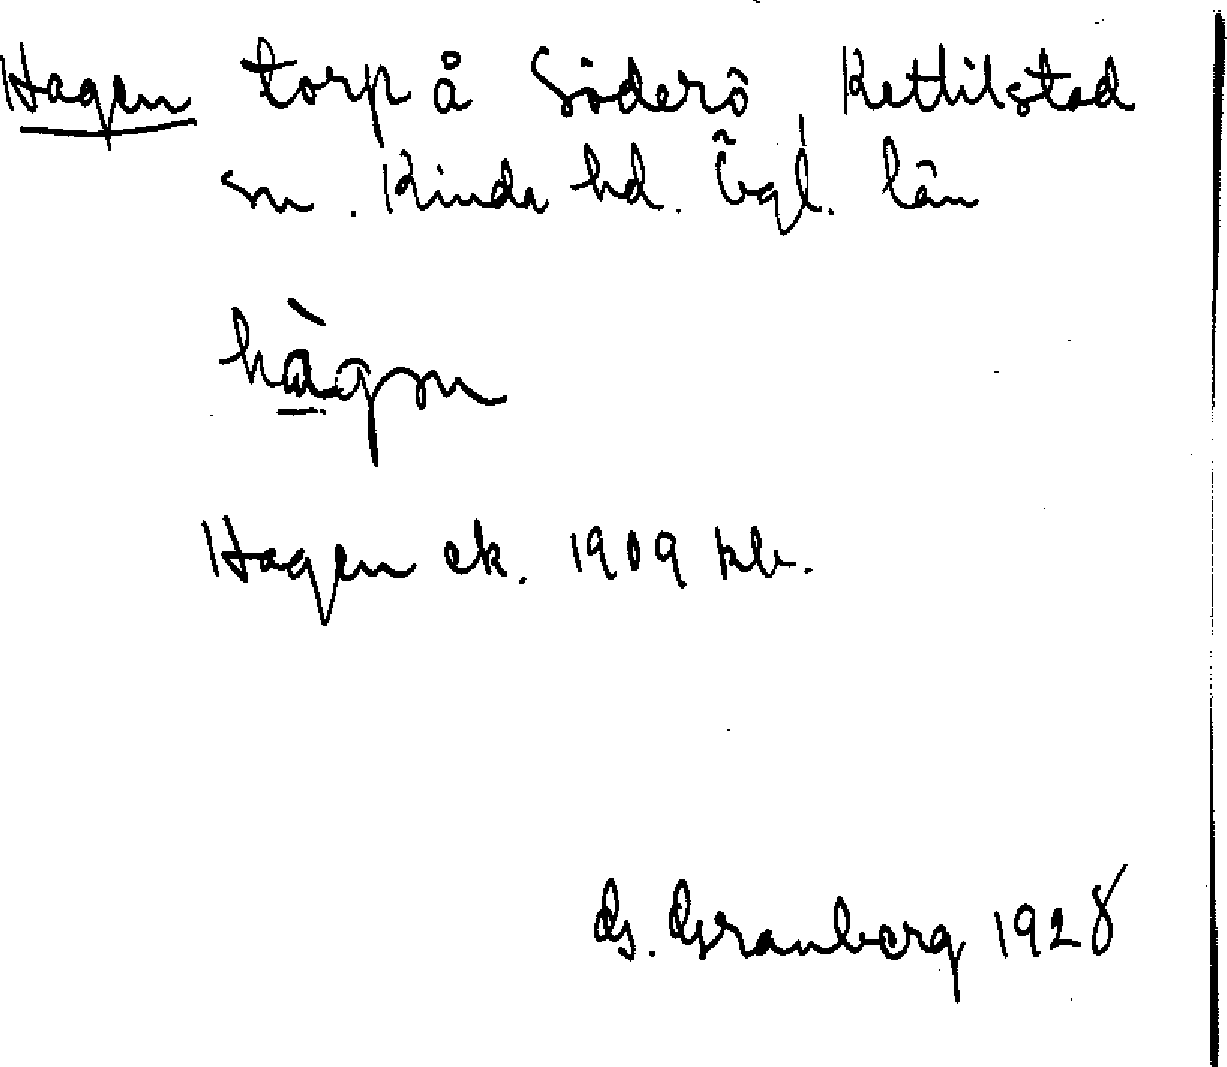 Hagen torp å Söderö Kettilstad
sn. Kinda hd. Ögl. län
hàgɒn
Hagen ek. 1909 kb.
G. Granberg 1928